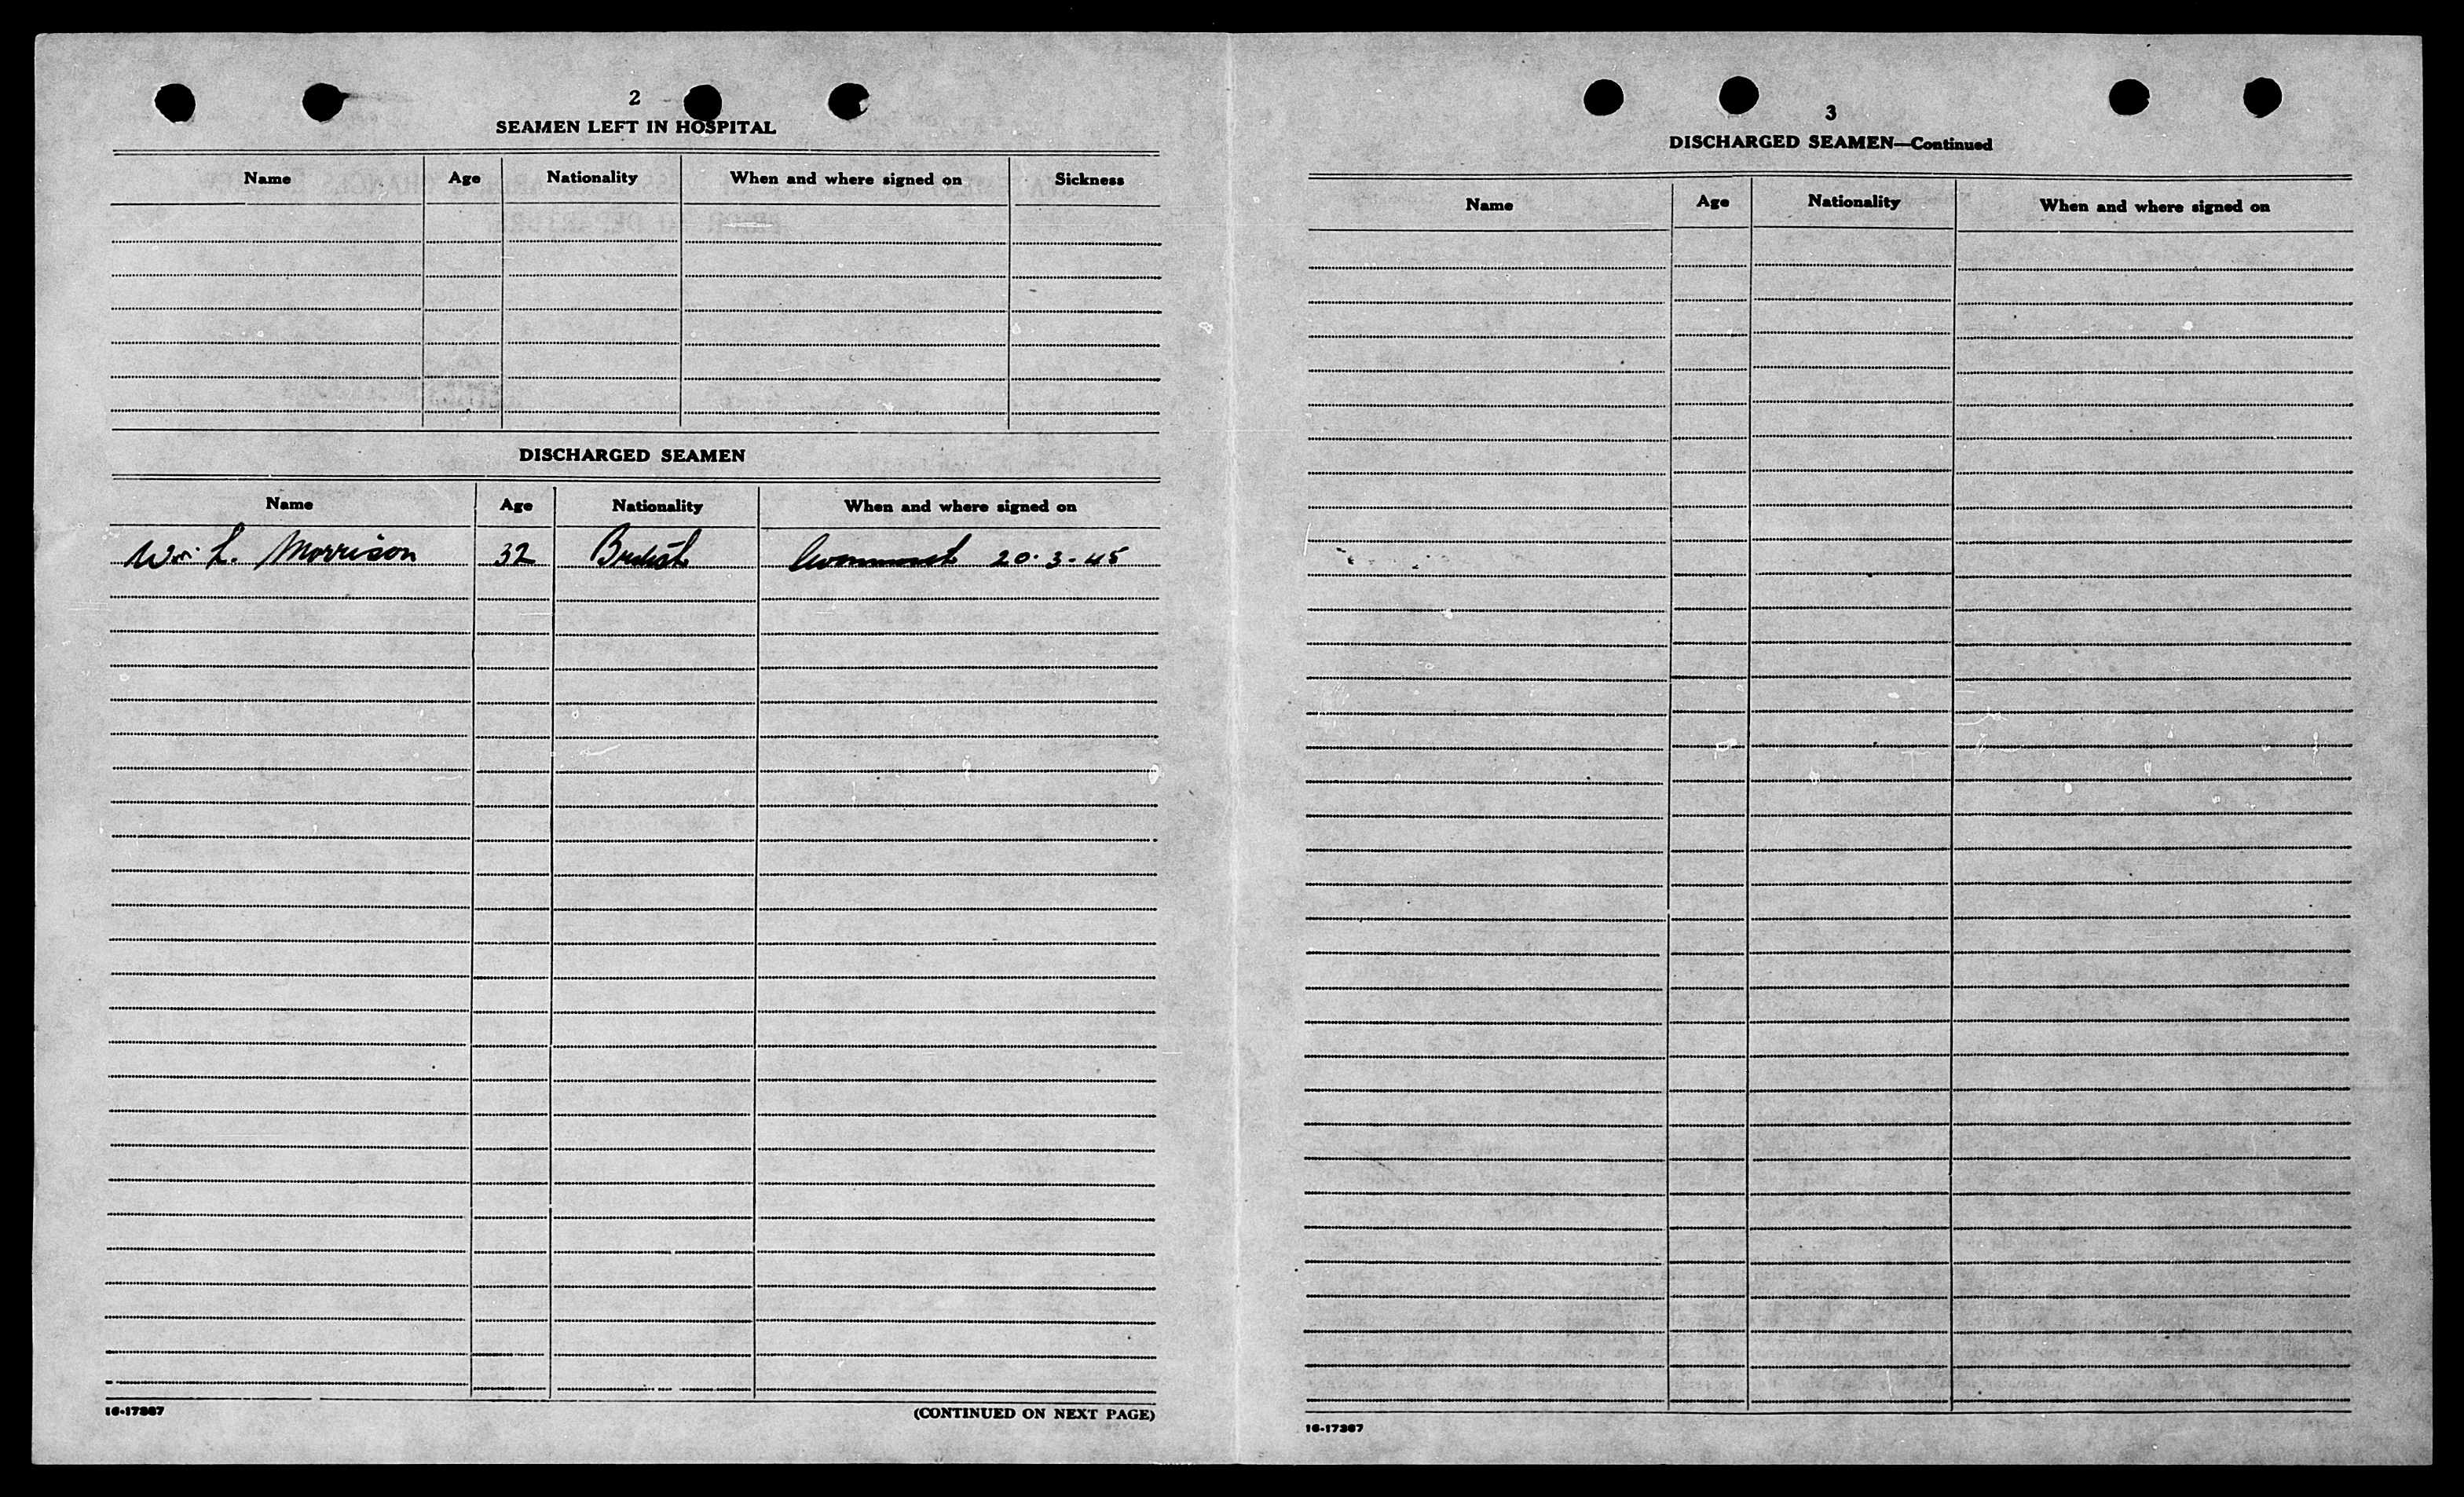 2
SEAMEN LEFT IN HOSPITAL
Name Age Nationality When and where signed on Sickness
DISCHARGED SEAMEN
Name Age Nationality When and where signed on
Wm. L. Morrison 32 British Avonmouth 20.3.45
16-17367
(CONTINUED ON NEXT PAGE)
3
DISCHARGED SEAMEN—Continued
Name Age Nationality When and where signed on
16-17367